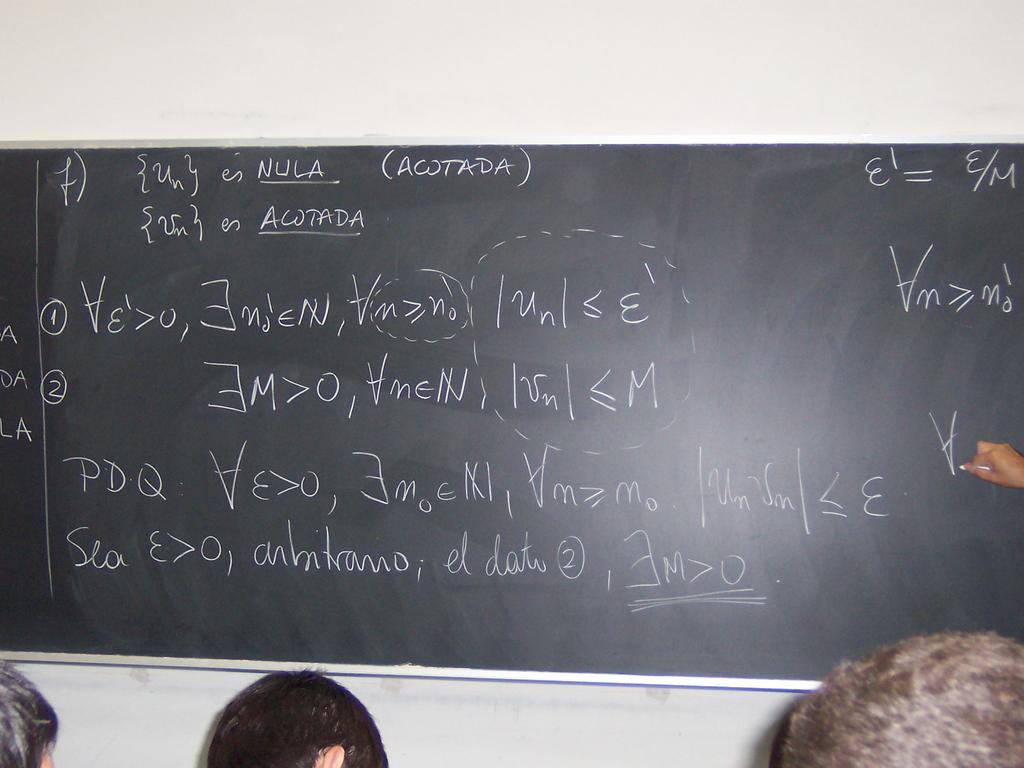 f) {un} es NULA (ACOTADA)
{vn} es ACOTADA
① ∀ε'>0, ∃n₀'∈ℕ, ∀n≥n₀', |un| ≤ ε'
② ∃M>0, ∀n∈ℕ, |vn| ≤ M
P.D.Q. ∀ε>0, ∃n₀∈ℕ, ∀n≥n₀. |un vn| ≤ ε.
Sea ε>0, arbitrario; el dato ②, ∃M>0.
A
DA
LA
ε' = ε/M
∀n≥n₀'
∀